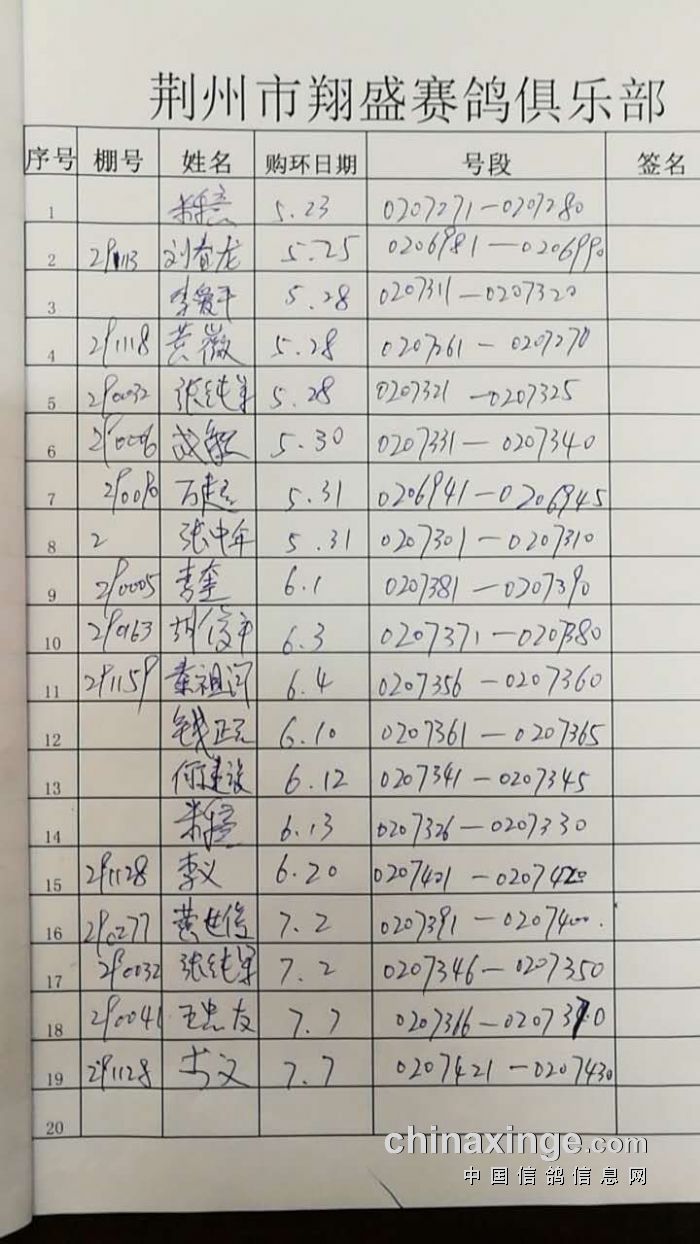 荆州市翔盛赛鸽俱乐部
序号 棚号 姓名 购环日期 号段 签名
1 5.23 0207271—0207280
2 刘春龙 5.25 0206981—0206990
3 李爱平 5.28 0207311—0207320
4 291118 黄薇 5.28 0207261—0207270
5 290032 张纯军 5.28 0207321—0207325
6 5.30 0207331—0207340
7 5.31 0206941—0206945
8 2 张中年 5.31 0207301—0207310
9 290005 李奎 6.1 0207381—0207390
10 290163 6.3 0207371—0207380
11 291159 6.4 0207356—0207360
12 6.10 0207361—0207365
13 何建设 6.12 0207341—0207345
14 6.13 0207326—0207330
15 291128 李义 6.20
16 290277 7.2 0207391—0207400
17 290032 张纯军 7.2 0207346—0207350
18 290041 王忠友 7.7 0207366—0207370
19 291128 7.7 0207421—0207430
20
chinaxinge.com
中国信鸽信息网